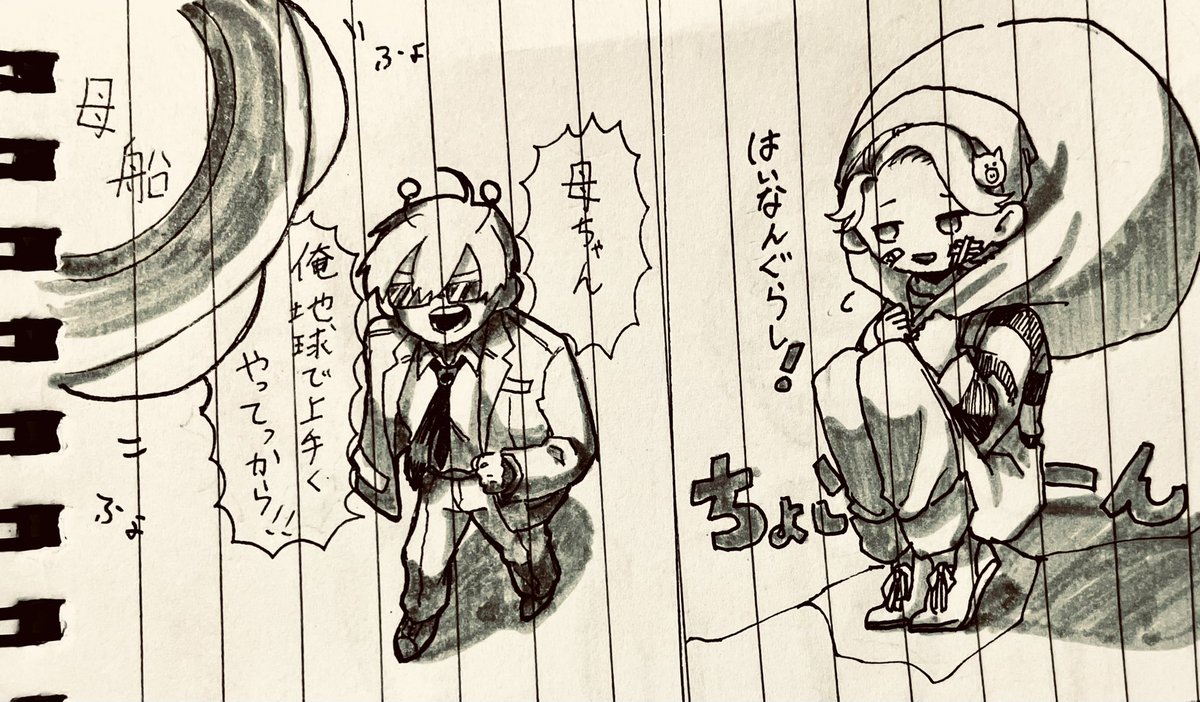 はいなんぐらし!
ちょこーん
母ちゃん
俺地球で上手く
やってっから!!
母船
ふよ
ふよ